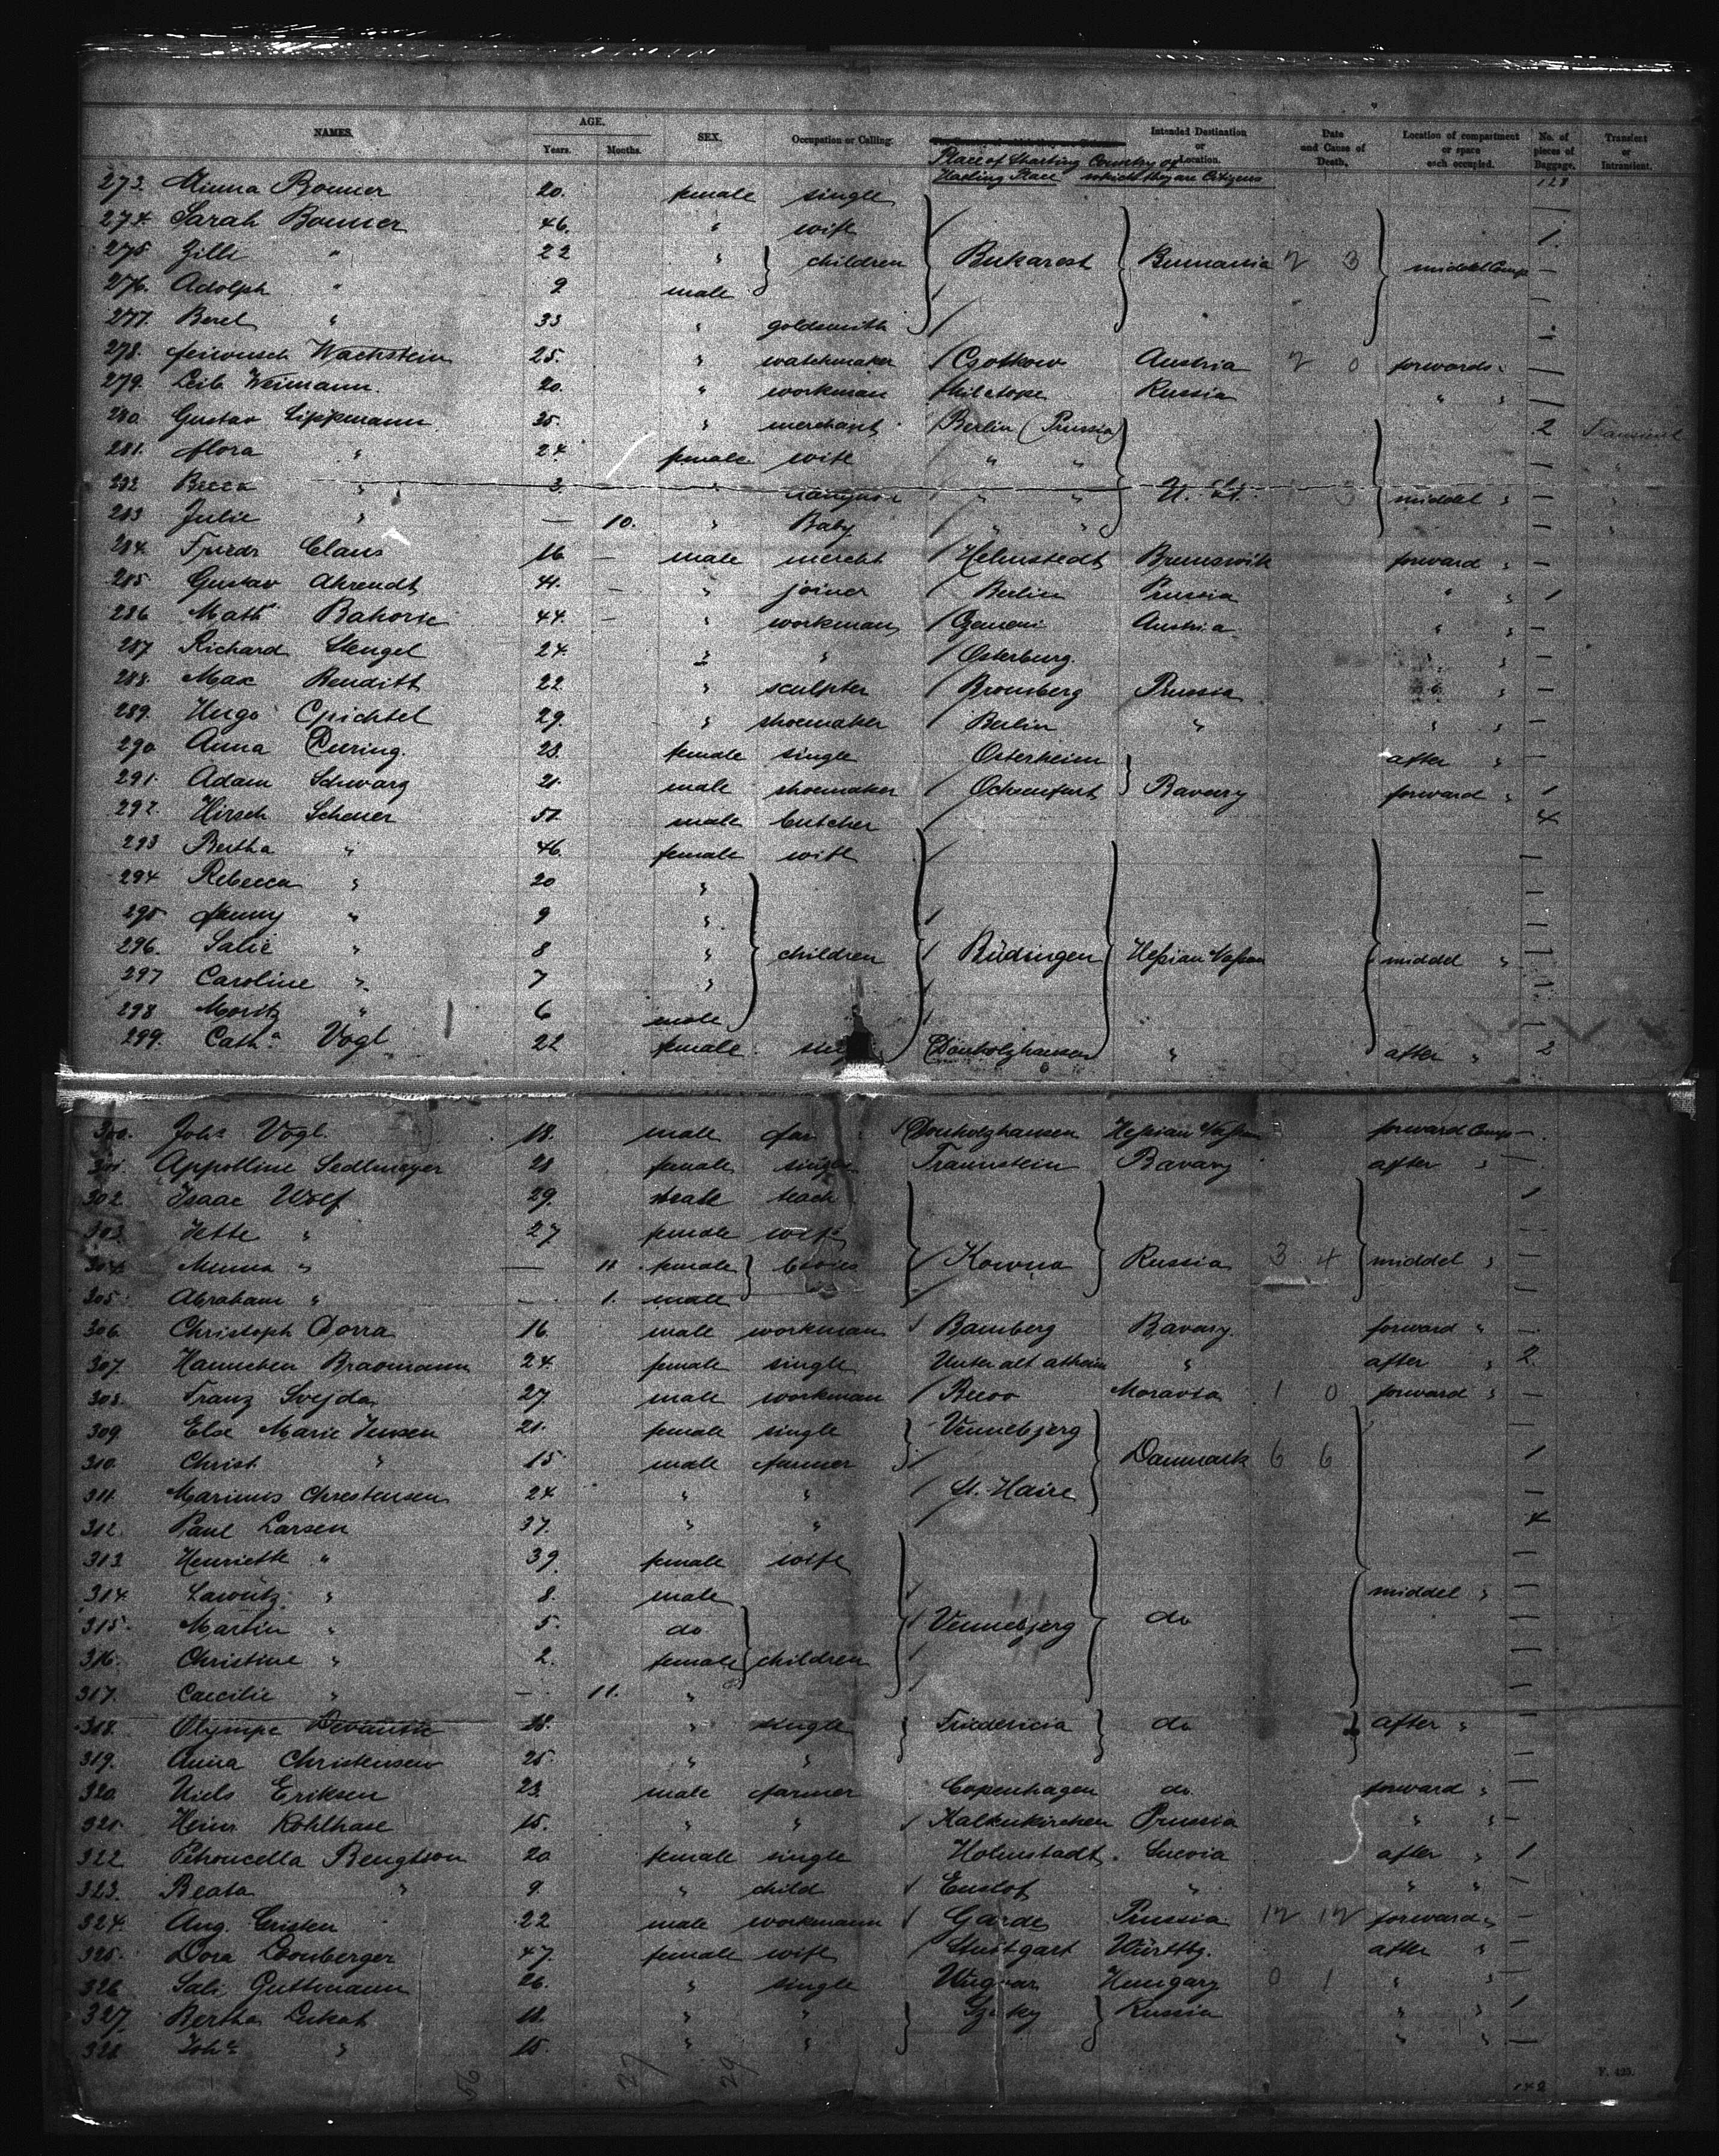 NAMES. AGE. Years. Months. SEX. Occupation or Calling. Place of Starting Hailing Place Country of which they are Citizens Intended Destination or Location. Date and Cause of Death. Location of compartment or space each occupied. No. of pieces of Baggage. Transient or Intransient.
128
273. Minna Bonner 20. female single —
274. Sarah Bonner 46. " wife 1.
275 Zilli " 22 " children Bukarest Rumania 2 3 middel Comp —
276. Adolph " 9 male —
277. Berel " 33 " goldsmith —
278. Wachstein 25. " watchmaker Austria 2 0 forwards " —
279. Leib Weimann. 20. " workman Russia " " —
280. Gustav Lippmann 35. " merchant Berlin (Prussia) 2 Transient
281. Flora " 24. female wife " " — "
282 Becca " 3. " " " U. St. 3 middel " — "
283 Julie " — 10. " Baby " " — "
284. Friedr Claus 16 — male mercht Helmstedt Brunswik forward " —
285. Gustav Ahrendt 41. — " joiner Berlin Prussia " " 1
286 Math Bahoric 44. — " workman Austria " " —
287 Richard Stengel 24. " " Osterburg. " " —
288. Max Benditt 22. " sculpter Bromberg Prussia " " —
289. Hugo 29. " shoemaker Berlin " " "
290 Anna Deering. 23. female single Osterheim after " —
291. Adam Schwarz 21. male shoemaker Ochsenfurt Bavary forward " 1
292. Hirsch Scheuer 51. male butcher 4
293 Bertha " 46. female wife —
294 Rebecca " 20 " —
295 Fanny " 9 " —
296. Salie " 8 " children Büdingen Hessian Nassau middel " —
297 Caroline " 7 " —
298 Moritz " 6 male —
299. Cath.ª Vogl 22 female Dönholzhausen " after " 2
300. Joh.s Vogl. 18. male Dönholzhausen Hessian Nassau forward Comp —
301 Appolline Sedlmayer 28 female single Traunstein Bavary after " —
302. Isaac Wolf 29. male teach 1
303. Jette " 27 female wife —
304. Minna " — 11. female Kowna Russia 3 4 middel " —
305. Abraham " — 1. male —
306. Christoph Dorra 16. male workman Bamberg Bavary. forward " —
307. Hannchen Braomann 24. female single " after " 2.
308. Franz Svejda 27. male workman Moravia 1 0 forward " —
309. Else Marie Jensen 21. female single Vennebjerg —
310. Christ. " 15 male farmer Danmark 6 6 1
311. Marinus Chrestensen 24 " " St. Haire —
312. Paul Larsen 37. " " 4
313. Henriette " 39. female wife —
314. Lawritz " 8. male middel " —
315. Martin " 5. do Vennebjerg do —
316. Christine " 2. female children —
317. Caecilie " — 11. " —
318. Olympe 18. " single Fridericia do after " —
319. Anna Christensen 25. " " —
320. Niels Eriksen 23. male farmer Copenhagen do forward " —
321. Heinr. Kohlhase 15. " " Kaltenkirchen Prussia " " —
322. Petronella Bengtson 20 female single Holmstadt. Suevia after " 1
323. Beata " 9. " child Enslof " " " —
324. Aug. Cristen 22 male workmann Garde Prussia 12 12 forward " —
325. Dora Leonberger 47. female wife Stuttgart Württbg. after " —
326 Sali Guttmann 26. " single Hungary 0 1 " " —
327. Bertha Lukat 18. " " Russia " " 1
328 Joh.ª " 15. " " " " —
56 27 29
F. 425.
142